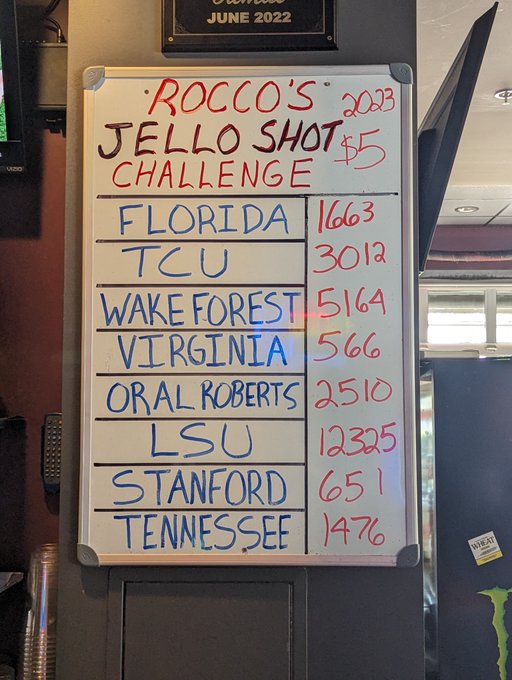 JUNE 2022
VIZIO
ROCCO'S 2023
JELLO SHOT $5
CHALLENGE
FLORIDA 1663
TCU 3012
WAKE FOREST 5164
VIRGINIA 566
ORAL ROBERTS 2510
LSU 12325
STANFORD 651
TENNESSEE 1476
WHEAT